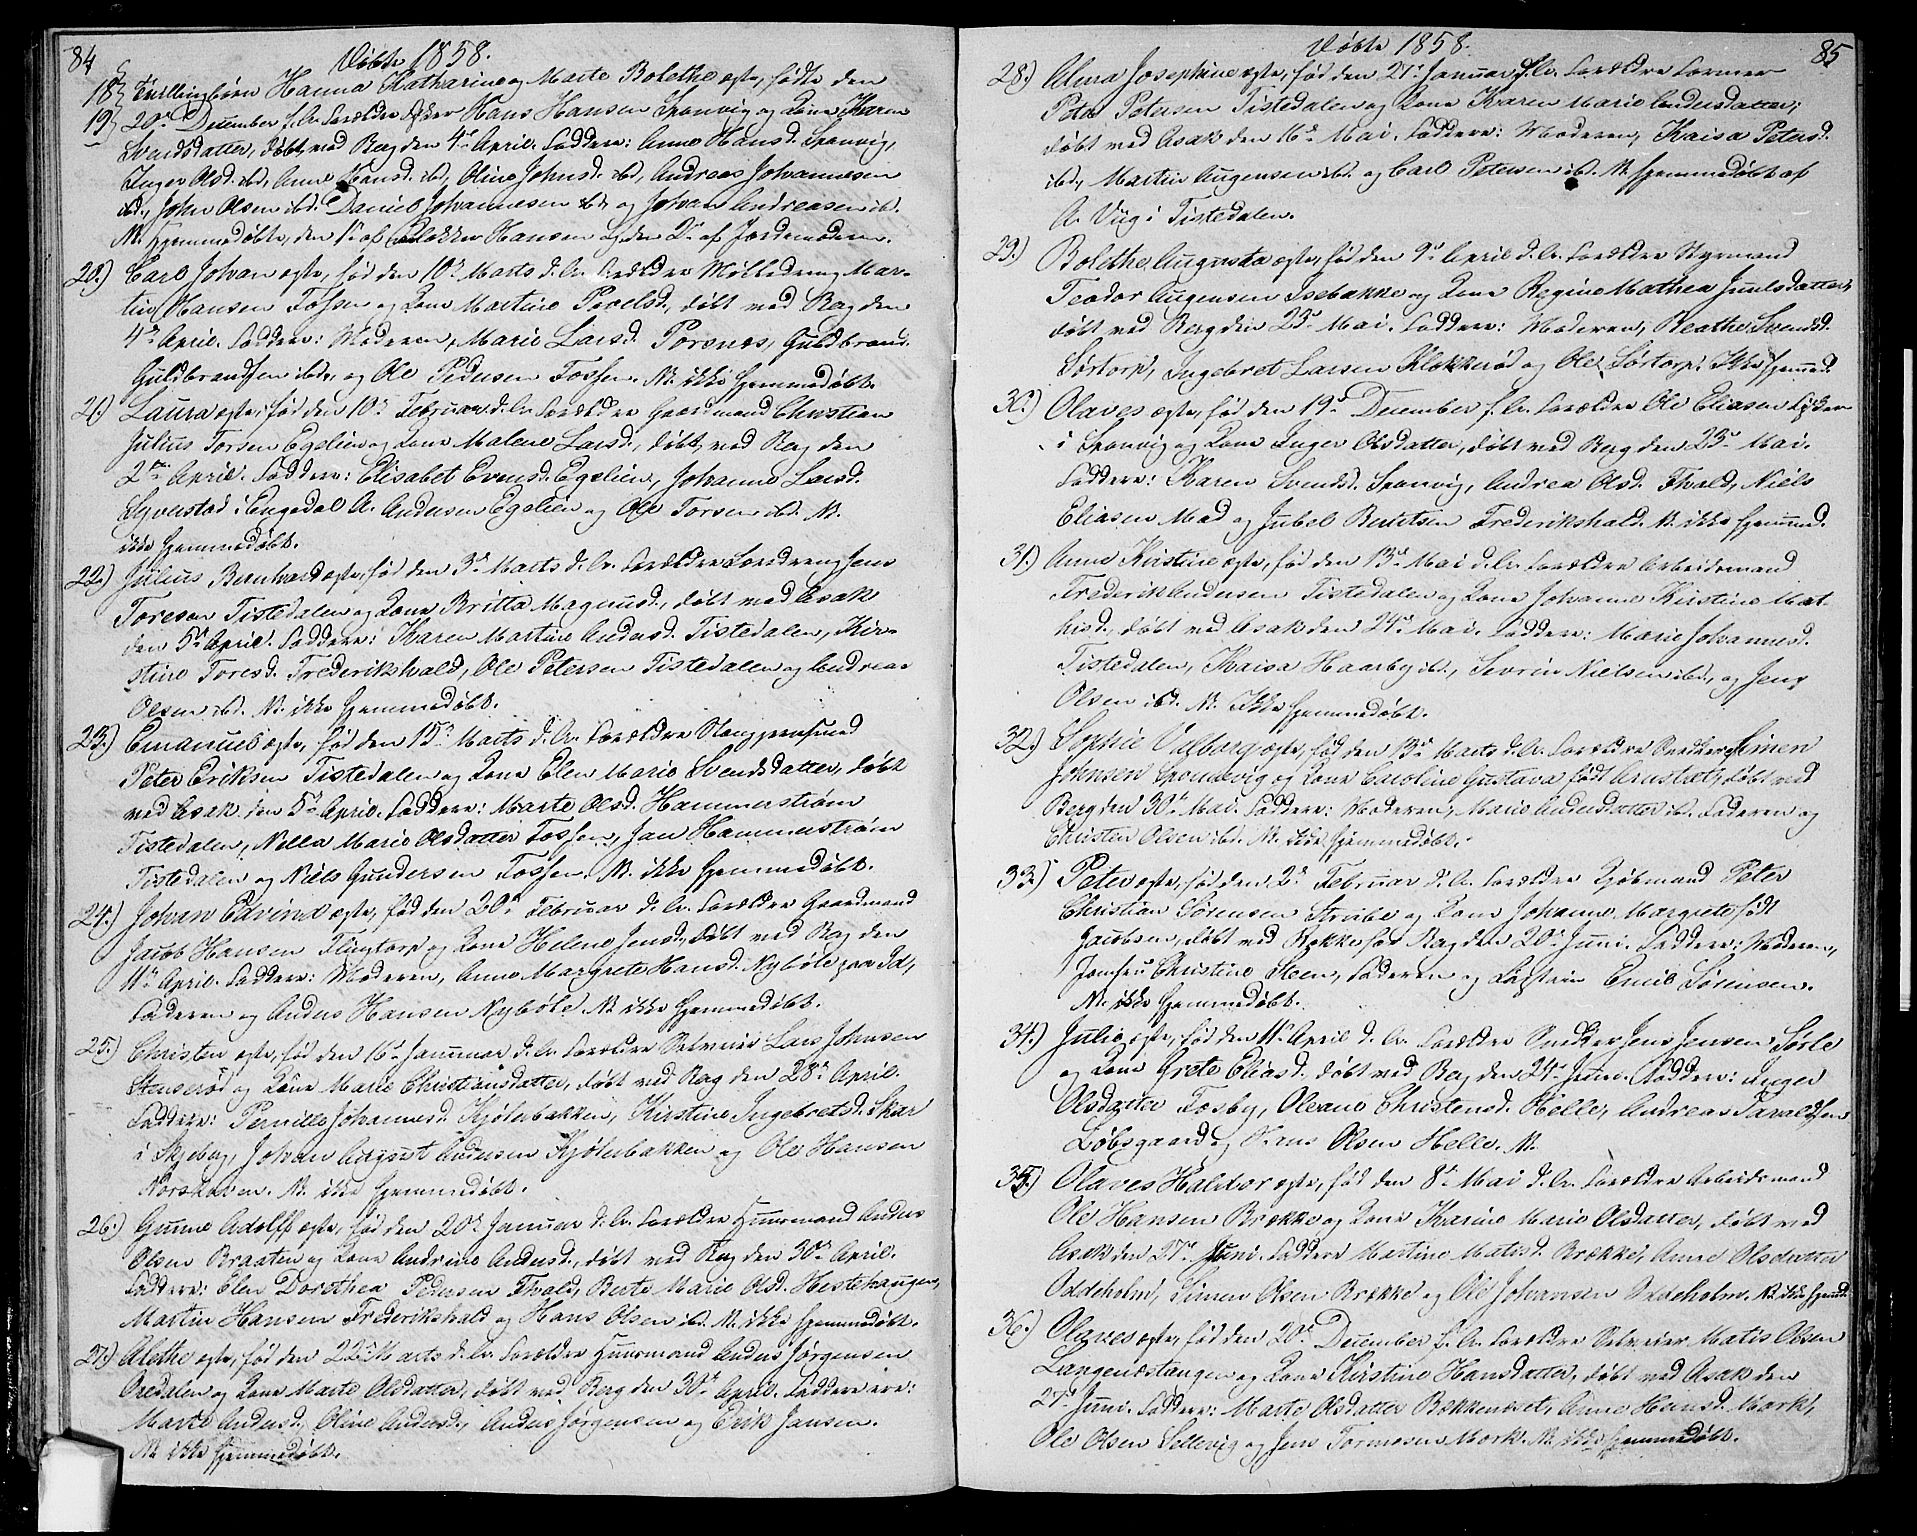 84
Døbte 1858.
18) Tvillingbørn Hanna Katharine og Marte Bolethe ægte, fødte den
19) 20de December f. Ar. Forældre Hans Hansen Sponvig og Kone Karen
Svendsdatter, døbt ved Berg den 4de April. Faddere: Anne Hansd. Sponvig,
Inger Olsd. ibd., Anne Hansd. ibd., Oline Johnsd. ibd., Andreas Johannesen
ibd., John Olsen ibd. Daniel Johannesen ibd. og Johan Andreasen ibd.
N. Hjemmedøbte, den 1ste af Klokker Hansen og den 2den af Jordemoderen.
20.) Carl Johan ægte, født den 10de Marts d. Ar. Forældre Mølledreng Mar-
tin Hansen Fossen og Kone Martine Povelsd., døbt ved Berg den
4de April. Faddere: Moderen, Marie Larsd. Porsnes, Guldbrand
Guldbrandsen ibd., og Ole Pedersen Fossen. N. ikke hjemmedøbt.
21.) Laura ægte, fød den 10de Februar d. Ar. Forældre Gaardmand Christian
Julius Torsen Egelien og Kone Malene Larsd., døbt ved Berg den
2den April. Faddere: Elisabet Evensd. Egelien, Johanne Larsd.
i Engedal A. Andersen Egelien og Ole Torsen ibd. N.
ikke hjemmedøbt.
22.) Julius Bernhard ægte, fød den 3de Marts d. Ar. Forældre Jens
Toresen Tistedalen og Kone Britta Magnusd., døbt ved Asak
den 5te April. Faddere: Karen Martine Andersd. Tistedalen, Kir-
stine Toresd. Frederikshald, Ole Petersen Tistedalen og Andreas
Olsen ibd. N. ikke hjemmedøbt.
23.) Emanuel ægte, fød den 15de Marts d. Ar. Forældre
Peter Eriksen Tistedalen og Kone Elen Marie Svendsdatter, døbt
ved Asak den 5te April. Faddere: Marte Olsd. Hammerstrøm
Tistedalen, Nilla Marie Olsdatter Fossen, Jan Hammerstrøm
Tistedalen og Niels Gundersen Fossen. N. ikke hjemmedøbt.
24.) Johan Edvind ægte, fød den 20de Februar d. Ar. Forældre Gaardmand
Jacob Hansen og Kone Helene Jensd., døbt ved Berg den
11te April. Faddere: Moderen, Anne Margrete Hansd. Nybøle paa Id,
Faderen og Anders Hansen Nybøle. N. ikke hjemmedøbt.
25.) Christen ægte, fød den 16de Januar d. Ar. Forældre Selveier Lars Johnsen
Stenserød og Kone Marie Christiansdatter, døbt ved Berg den 28de April.
Faddere: Pernille Johannesd. Kjølerbakken, Kirstine Ingebretsd. Skar
i Skjeberg, Johan August Andersen Kjølerbakken og Ole Hansen
Norskoven. N. ikke hjemmedøbt.
26.) Gunne Adolf ægte, fød den 20de Januar d. Ar. Forældre Huusmand Anders
Olsen Braaten og Kone Andrine Andersd., døbt ved Berg den 30te April.
Faddere: Elen Dorothea Pedersen Fhald, Berte Marie Olsd. Hestehaugen,
Martin Hansen Frederikshald og Hans Olsen ibd. N. ikke hjemmedøbt.
27.) Alethe ægte, fød den 22de Marts d. Ar. Forældre Huusmand Anders Jørgensen
Oredalen og Kone Marte Olsdatter, døbt ved Berg den 30te April. Faddere ere:
Marte Andersd., Oline Andersd., Anders Jørgensen og Erik Jansen.
N. ikke hjemmedøbt.
85
Døbte 1858.
28.) Alma Josephine ægte, fød den 21de Januar d. Ar. Forældre Former
Peter Petersen Tistedalen og Kone Karen Marie Andersdatter;
døbt ved Asak den 16de Mai. Faddere: Moderen, Kaisa Petersd.
ibd., Martin Augensen ibd. og Carl Petersen ibd. N. hjemmedøbt af
A. Viig i Tistedalen.
29.) Bolethe Augusta ægte, fød den 9de April d. Ar. Forældre Styrmand
Teodor Augensen Isebakke og Kone Regine Mathea Juulsdatter,
døbt ved Berg den 23de Mai. Faddere: Moderen, Beathe Svendsd.
Sørtorp, Ingebret Larsen Klokkerød og Ole Sørtorp. Ikke hjemmed.
30.) Olaves ægte, fød den 19de December f. Ar. Forældre Ole Eliasen
i Sponvig og Kone Inger Olsdatter, døbt ved Berg den 23de Mai.
Faddere: Karen Svendsd. Sponvig, Andrea Olsd. Fhald, Niels
Eliasen Mad og Jubel Berntsen Frederikshald. N. ikke hjemmed.
31.) Anne Kirstine ægte, fød den 13de Mai d. Ar. Forældre Arbeidsmand
Frederik Andersen Tistedalen og Kone Johanne Kirstine Mat-
hisd., døbt ved Asak den 24de Mai. Faddere: Marie Johannesd.
Tistedalen, Kaisa Haarby ibd., Severin Nielsen ibd., og Jens
Olsen ibd. N. Ikke hjemmedøbt.
32.) Sophie Valborg ægte, fød den 13de Marts d. Ar. Forældre Simen
Johnsen Sponvig og Kone Caroline Gustava født Arnstæt, døbt ved
Berg den 30te Mai. Faddere: Moderen, Marie Andersdatter ibd. Faderen og
Christen Olsen ibd. N. ikke hjemmedøbt.
33.) Peter ægte, fød den 2de Februar d. Ar. Forældre Kjøbmand Peter
Christian Sørensen Strube og Kone Johanne Margrete født
Jacobsen, døbt ved Rokke for Berg den 20de Juni. Faddere: Moderen,
Jomfru Christine Steen, Faderen og Emil Sørensen.
N. ikke hjemmedøbt.
34.) Julie ægte, fød den 11te April d. Ar. Forældre Jens Jensen Sørle
og Kone Grete Eliasd. døbt ved Berg den 24de Juni. Faddere: Inger
Olsdatter Fosby, Oleane Christensd. Helle, Andreas Taraldsen
Løbsgaard og Hans Olsen Helle. N.
35.) Olaves Haldor ægte, fød den 8de Mai d. Ar. Forældre Arbeidsmand
Ole Hansen Brække og Kone Karine Marie Olsdatter, døbt ved
Asak den 27de Juni. Faddere Martine Matisd. Brække, Anne Olsdatter
Oddeholm, Simen Olsen Brække og Ole Johansen Oddeholm. N. ikke hjemd.
36.) Olaves ægte, fød den 20de December f. Ar. Forældre Selveier Matis Olsen
Langenæstangen og Kone Kirstine Hansdatter, døbt ved Asak den
27de Juni. Faddere: Marte Olsdatter Bakkenæset, Anne Hansd. Mork,
Ole Olsen Sellevig og Jens Tormosen Mork. N. ikke hjemmedøbt.